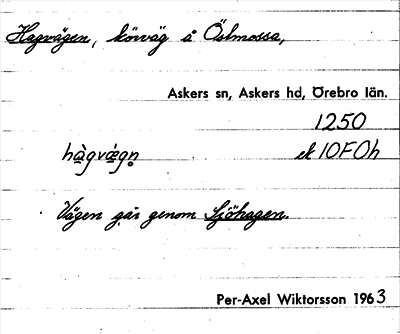 Hagvägen, körväg å Öslmossa,
Askers sn, Askers hd, Örebro län.
1250
hàgvǽgn̥ ek 10F0h
Vägen går genom Sjöhagen.
Per-Axel Wiktorsson 1963